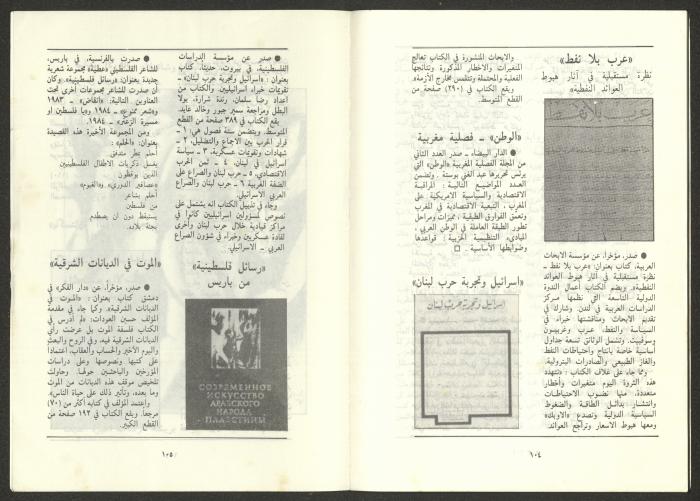 «عرب بلا نفط»
نظرة مستقبلية في آثار هبوط
العوائد النفطية»
● صدر، مؤخراً، عن مؤسسة الابحاث
العربية، كتاب بعنوان: «عرب بلا نفط ـ
نظرة مستقبلية في آثار هبوط العوائد
النفطية». ويضم الكتاب أعمال الندوة
الدولية التاسعة التي نظمها مركز
الدراسات العربية في لندن. وشارك في
تقديم الابحاث ومناقشتها خبراء في
السياسة والنفط، عرب وغربيون
وسوفييت. وتشمل الوثائق تسعة جداول
أساسية خاصة بانتاج واحتياطات النفط
والغاز الطبيعي والصادرات البترولية.
ومما جاء على غلاف الكتاب: «تتهدد
هذه الثروة اليوم متغيرات وأخطار
متعددة، منها نضوب الاحتياطات
وانتشار بدائل الطاقة والضغوط
السياسية الدولية وتصدع «الاوبك»
ومعها هبوط الاسعار وتراجع العوائد
والابحاث المنشورة في الكتاب تعالج
المتغيرات والاخطار المذكورة ونتائجها
الفعلية والمحتملة وتتلمس مخارج الأزمة».
ويقع الكتاب في (٢٩٠) صفحة من
القطع المتوسط.
«الوطن» ـ فصلية مغربية
● الدار البيضاء ـ صدر العدد الثاني
من المجلة الفصلية المغربية «الوطن» التي
يرئس تحريرها عبد الغني بوستة. وتضمن
العدد المواضيع التالية: المراقبة
الاقتصادية والسياسية الامريكية على
المغرب، التبعية الاقتصادية في المغرب
وتعمق الفوارق الطبقية، مميزات ومراحل
تطور الطبقة العاملة في الوطن العربي،
المبادىء التنظيمية الحزبية: قواعدها
وضوابطها الأساسية. □
«اسرائيل وتجربة حرب لبنان»
اسرائيل وتجربة حرب لبنان
١٠٤
● صدر عن مؤسسة الدراسات
الفلسطينية، في بيروت، حديثاً، كتاب
بعنوان: «اسرائيل وتجربة حرب لبنان» ـ
تقويمات خبراء اسرائيليين. والكتاب من
اعداد رضا سلمان، رندة شرارة، يولا
البطل ومراجعة سمير جبور وخالد عايد.
يقع الكتاب في ٣٨٩ صفحة من القطع
المتوسط. ويتضمن ستة فصول هي: ١ ـ
قرار الحرب بين الاجماع والتضليل، ٢ ـ
شهادات وتقويمات عسكرية، ٣ ـ سياسة
اسرائيل في لبنان، ٤ ـ ثمن الحرب
الاقتصادي، ٥ ـ حرب لبنان والصراع على
الضفة الغربية، ٦ ـ حرب لبنان والصراع
العربي الاسرائيلي.
وجاء في تذييل الكتاب انه يشتمل على
نصوص لمسؤولين اسرائيليين كانوا في
مراكز قيادية خلال حرب لبنان وأخرى
لقادة عسكريين وخبراء في شؤون الصراع
العربي ـ الاسرائيلي.
«رسائل فلسطينية»
من باريس
СОВРЕМЕННОЕ
ИСКУССТВО
АРАБСКОГО
НАРОДА
ПАЛЕСТИНЫ
● صدرت بالفرنسية، في باريس،
للشاعر الفلسطيني «عطية» مجموعة شعرية
جديدة بعنوان: «رسائل فلسطينية». وكان
أن صدرت للشاعر مجموعات أخرى تحت
العناوين التالية: «انقاض» ـ ١٩٨٣
و«شعر ممنوع» ـ ١٩٨٤ و«يا فلسطين او
مسيرة الزعتر» ـ ١٩٨٤.
ومن المجموعة الأخيرة هذه القصيدة
بعنوان: «الحلم»:
أحلم بمطر متدفق
يغسل ذكريات الاطفال الفلسطينيين
الذين يوقظون
«عصافير الدوري» و«الغيوم»
أحلم بشاعر
من فلسطين
يستيقظ دون ان يصطدم
بجثة بلاده.
«الموت في الديانات الشرقية»
● صدر، مؤخراً، عن «دار الفكر» في
دمشق كتاب بعنوان: «الموت في
الديانات الشرقية». وكما جاء في مقدمة
المؤلف حسين العودات: «لم أدرس في
الكتاب فلسفة الموت بل عرضت رأي
الديانات الشرقية فيه، وفي الروح والبعث
واليوم الآخر والحساب والعقاب، اعتماداً
على كتبها ونصوصها وعلى دراسات
المؤرخين والباحثين حولها. وحاولت
تلخيص موقف هذه الديانات من الموت
وما بعده، وتأثير ذلك على حياة الناس».
واعتمد المؤلف في كتابه أكثر من (٧٠)
مرجعاً. ويقع الكتاب في ١٩٢ صفحة من
القطع الكبير.
١٠٥